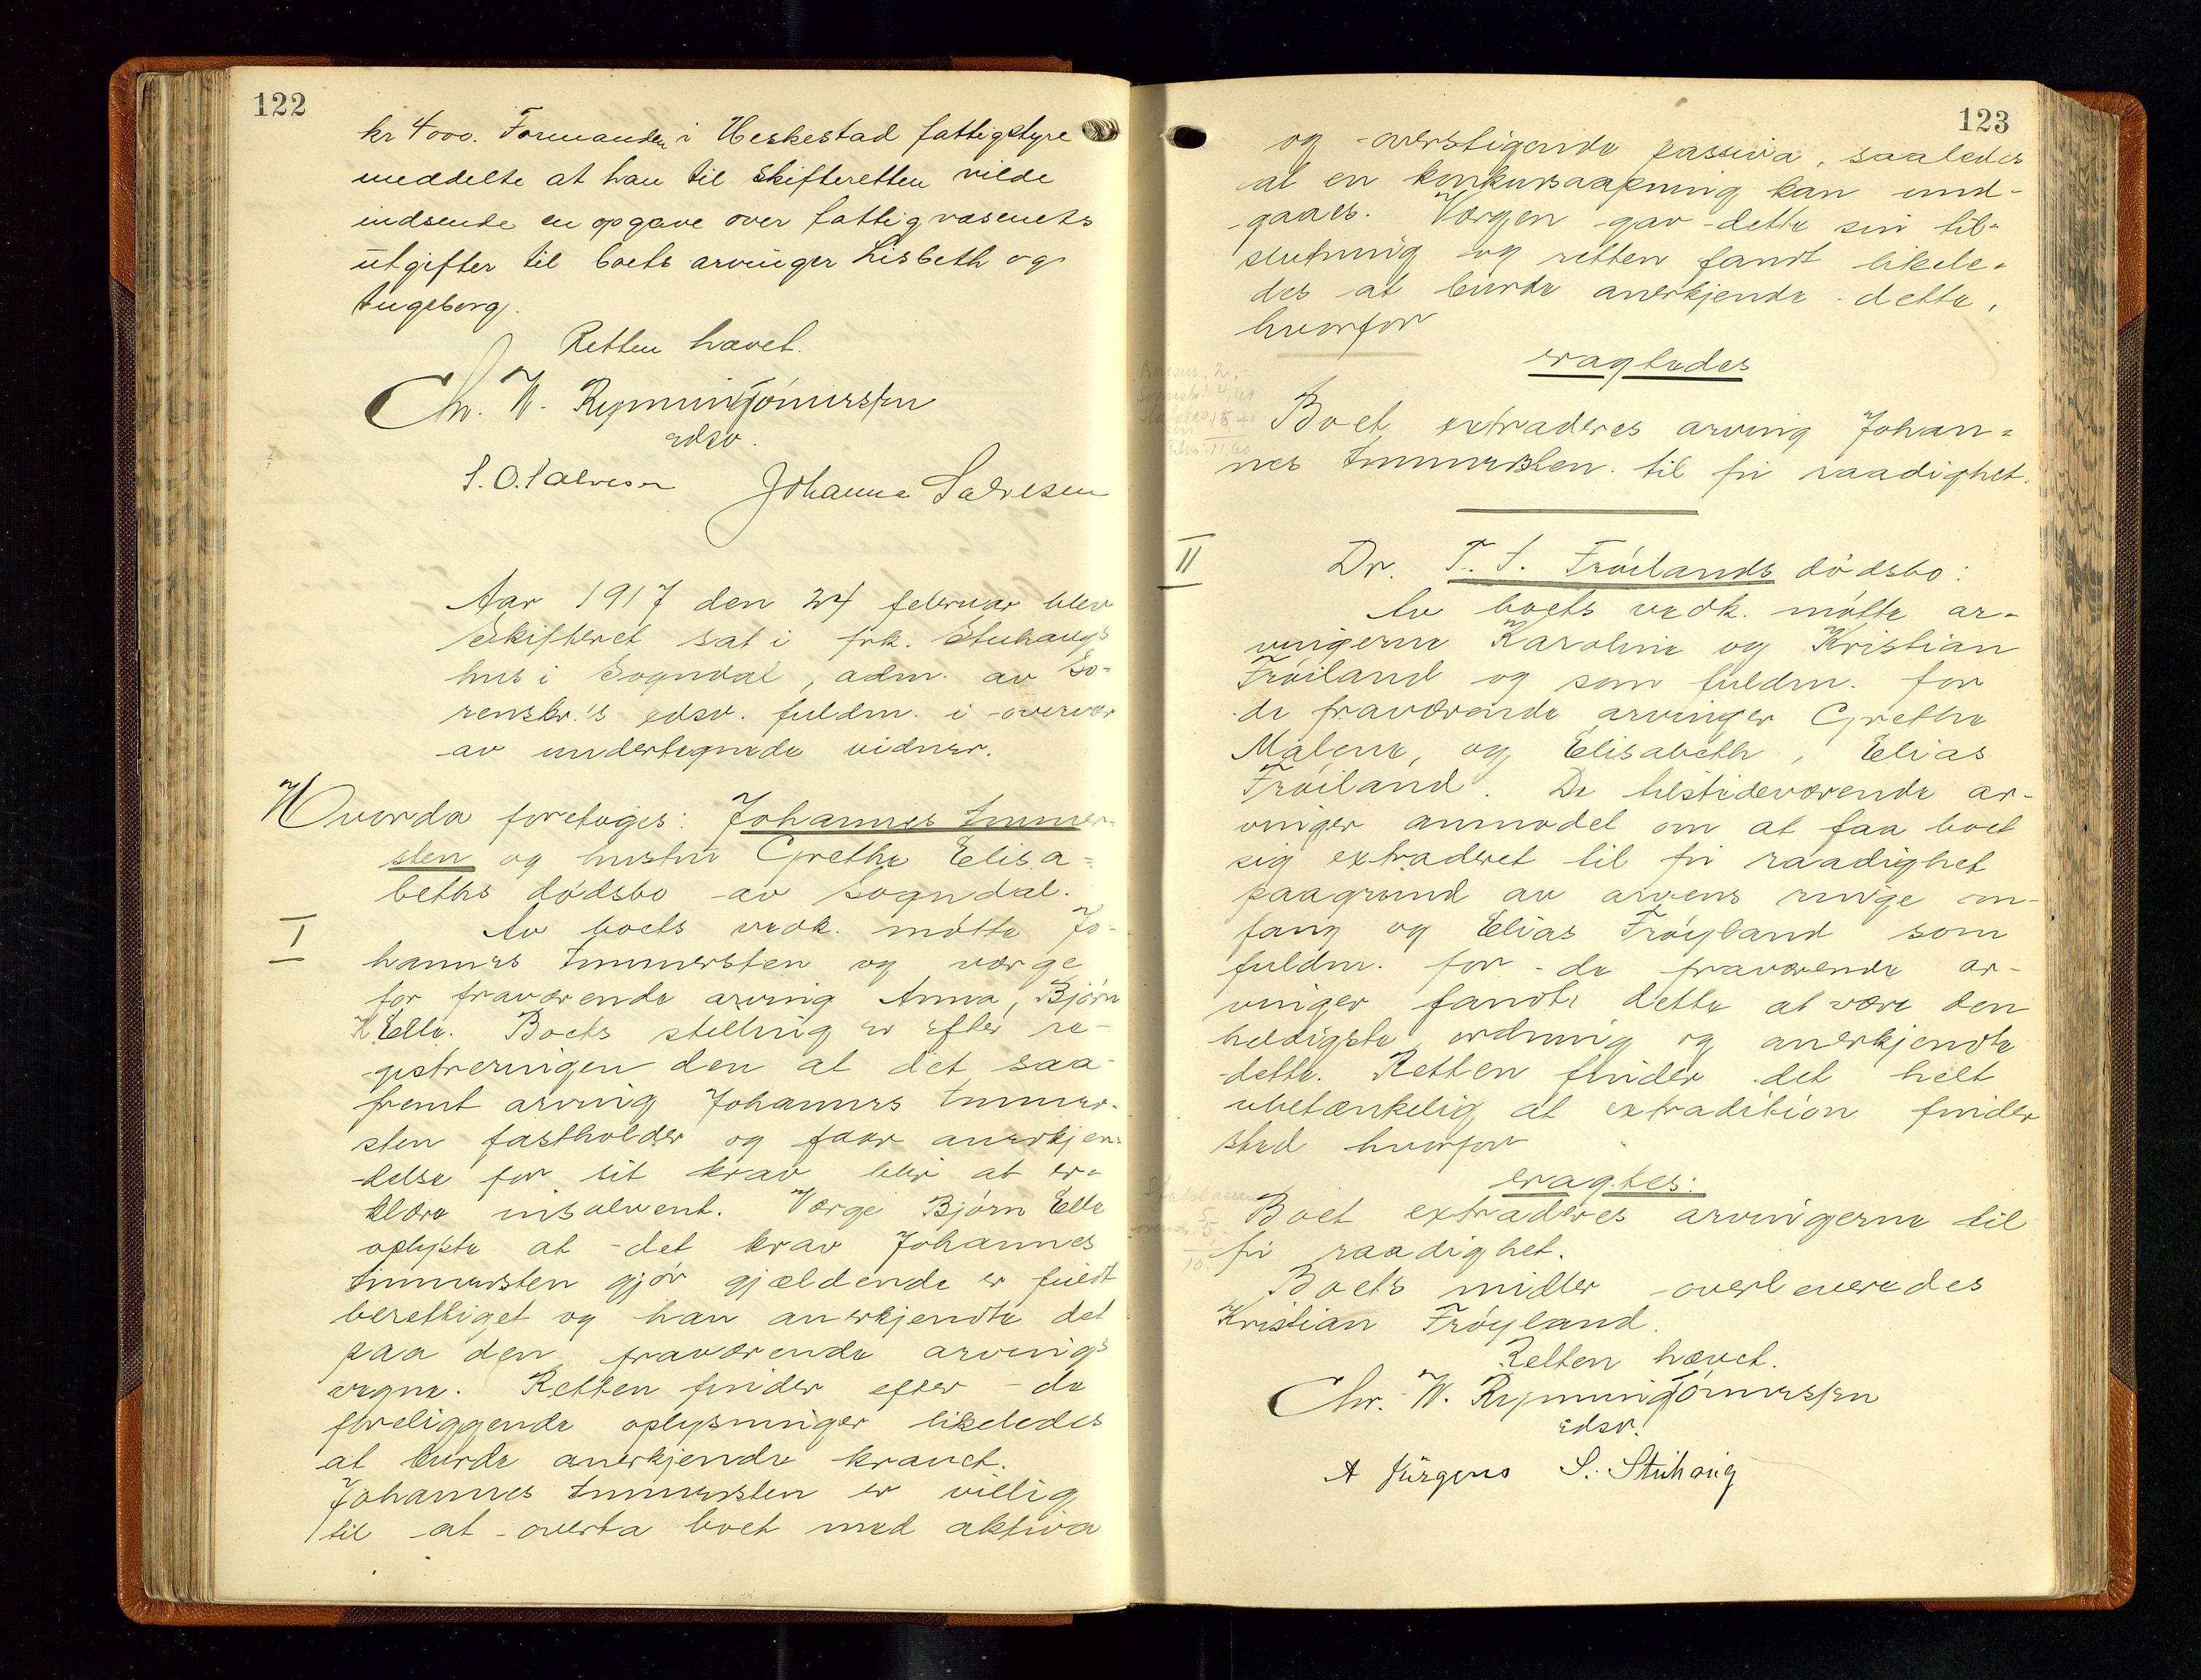 122
kr 4000. Formanden i Heskestad fattigstyre
meddelte at han til skifteretten vilde
indsende en opgave over fattigvæsenets
utgifter til boets arvinger Lisbeth og
Ingeborg.
Retten hævet.
Chr. W.
edsv.
S. O. Salvesen Johanne Salvesen
Aar 1917 den 24 februar blev
skifteret sat i frk. Stuhaugs
hus i Sogndal, adm. av So-
renskr.'s edsv. fuldm. i overvær
av undertegnede vidner.
Hvorda foretoges: Johannes Immer-
sten og hustru Grethe Elisa-
beths dødsbo av Sogndal.
I
Av boets vedk. møtte Jo-
hannes Immersten og værge
for fraværende arving Anna, Bjørn
K. Elle. Boets stilling er efter re-
gistreringen den at det saa-
fremt arving Johannes Immer-
sten fastholder og faar anerkjen-
delse for sit krav blir at er-
klære insolvent. Værge Bjørn Elle
oplyste at det krav Johannes
Immersten gjør gjældende er fuldt
berettiget og han anerkjendte det
paa den fraværende arvings
vegne. Retten finder efter de
foreliggende oplysninger likeledes
at burde anerkjende kravet.
Johannes Immersten er villig
til at overta boet med aktiva
123
og overstigende passiva, saaledes
at en konkursaapning kan und-
gaaes. Værgen gav dette sin til-
slutning og retten fandt likele-
des at burde anerkjende dette,
hvorfor
eragtedes
Boet extraderes arving Johan-
nes Immersten til fri raadighet.
II
Dr. T. S. Frøilands dødsbo:
Av boets vedk. møtte ar-
vingerne Karoline og Kristian
Frøiland og som fuldm. for
de fraværende arvinger Grethe
Malene, og Elisabeth, Elias
Frøiland. De tilstedeværende ar-
vinger anmodet om at faa boet
sig extraderet til fri raadighet
paagrund av arvens ringe om-
fang og Elias Frøyland som
fuldm. for de fraværende ar-
vinger fandt dette at være den
heldigste ordning og anerkjendte
dette. Retten finder det helt
ubetænkelig at extradition finder
sted hvorfor
eragtes:
Boet extraderes arvingerne til
fri raadighet.
Boets midler overleveredes
Kristian Frøyland.
Retten hævet.
Chr. W.
edsv.
A Jürgens S. Stuhaug